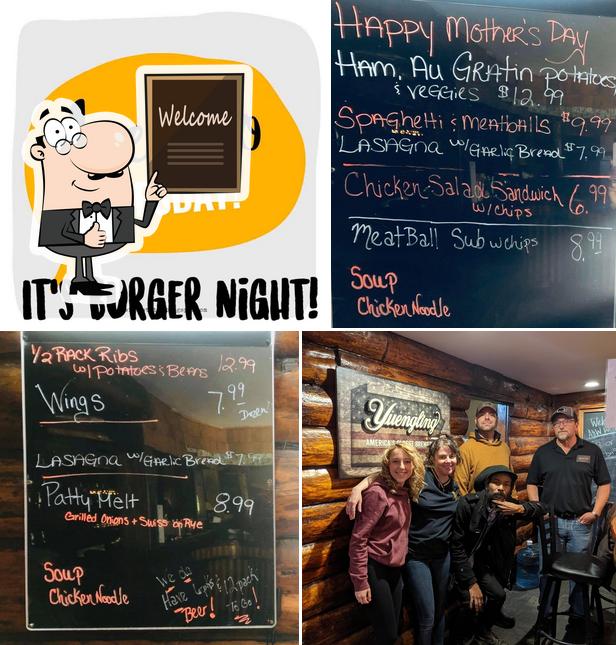 Welcome
DAY!
IT'S BURGER NIGHT!
HAPPY MOTHER'S DAY
HAM, AU GRATIN POTATOES
& VEGGIES $12.99
SPAGHETTI & MEATBALLS $9.99
LASAGNA W/GARLIC BREAD $7.99
CHICKEN SALAD SANDWICH 6.99
W/CHIPS
MEATBALL SUB W CHIPS 8.99
SOUP
CHICKEN NOODLE
1/2 RACK RIBS
W/ POTATOES & BEANS 12.99
WINGS 7.99
DOZEN
LASAGNA W/GARLIC BREAD $7.99
PATTY MELT 8.99
GRILLED ONIONS + SWISS ON RYE
SOUP
CHICKEN NOODLE
WE DO
HAVE 6 PKS & 12 PACK
BEER! TO GO!
Yuengling
AMERICA'S OLDEST BREWERY